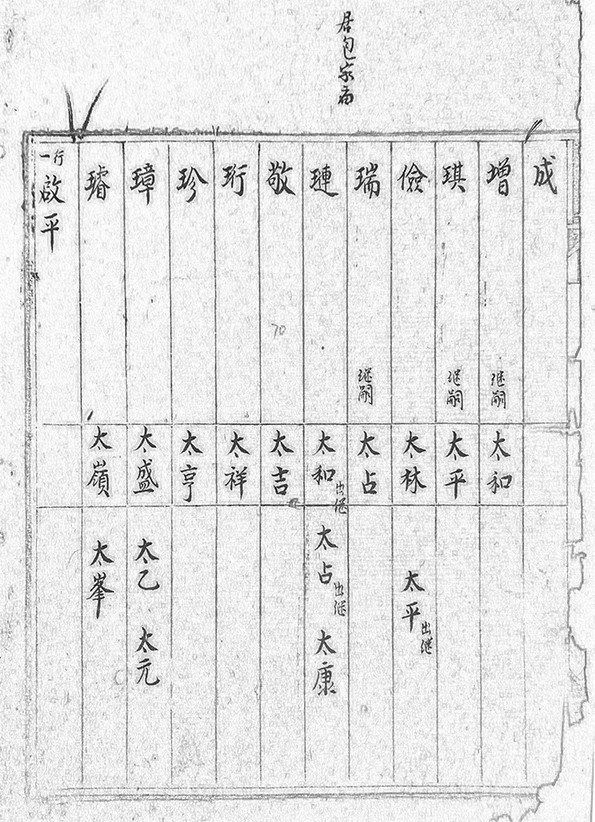 居包家庙
成
增 继嗣 太和
琪 继嗣 太平
儉 太林 太平出继
瑞 继嗣 太占
璉 太和出继 太占出继 太康
敬 太吉
珩 太祥
珍 太亨
璋 太盛 太乙 太元
璿 太嶺 太峯
一行
啟平
70